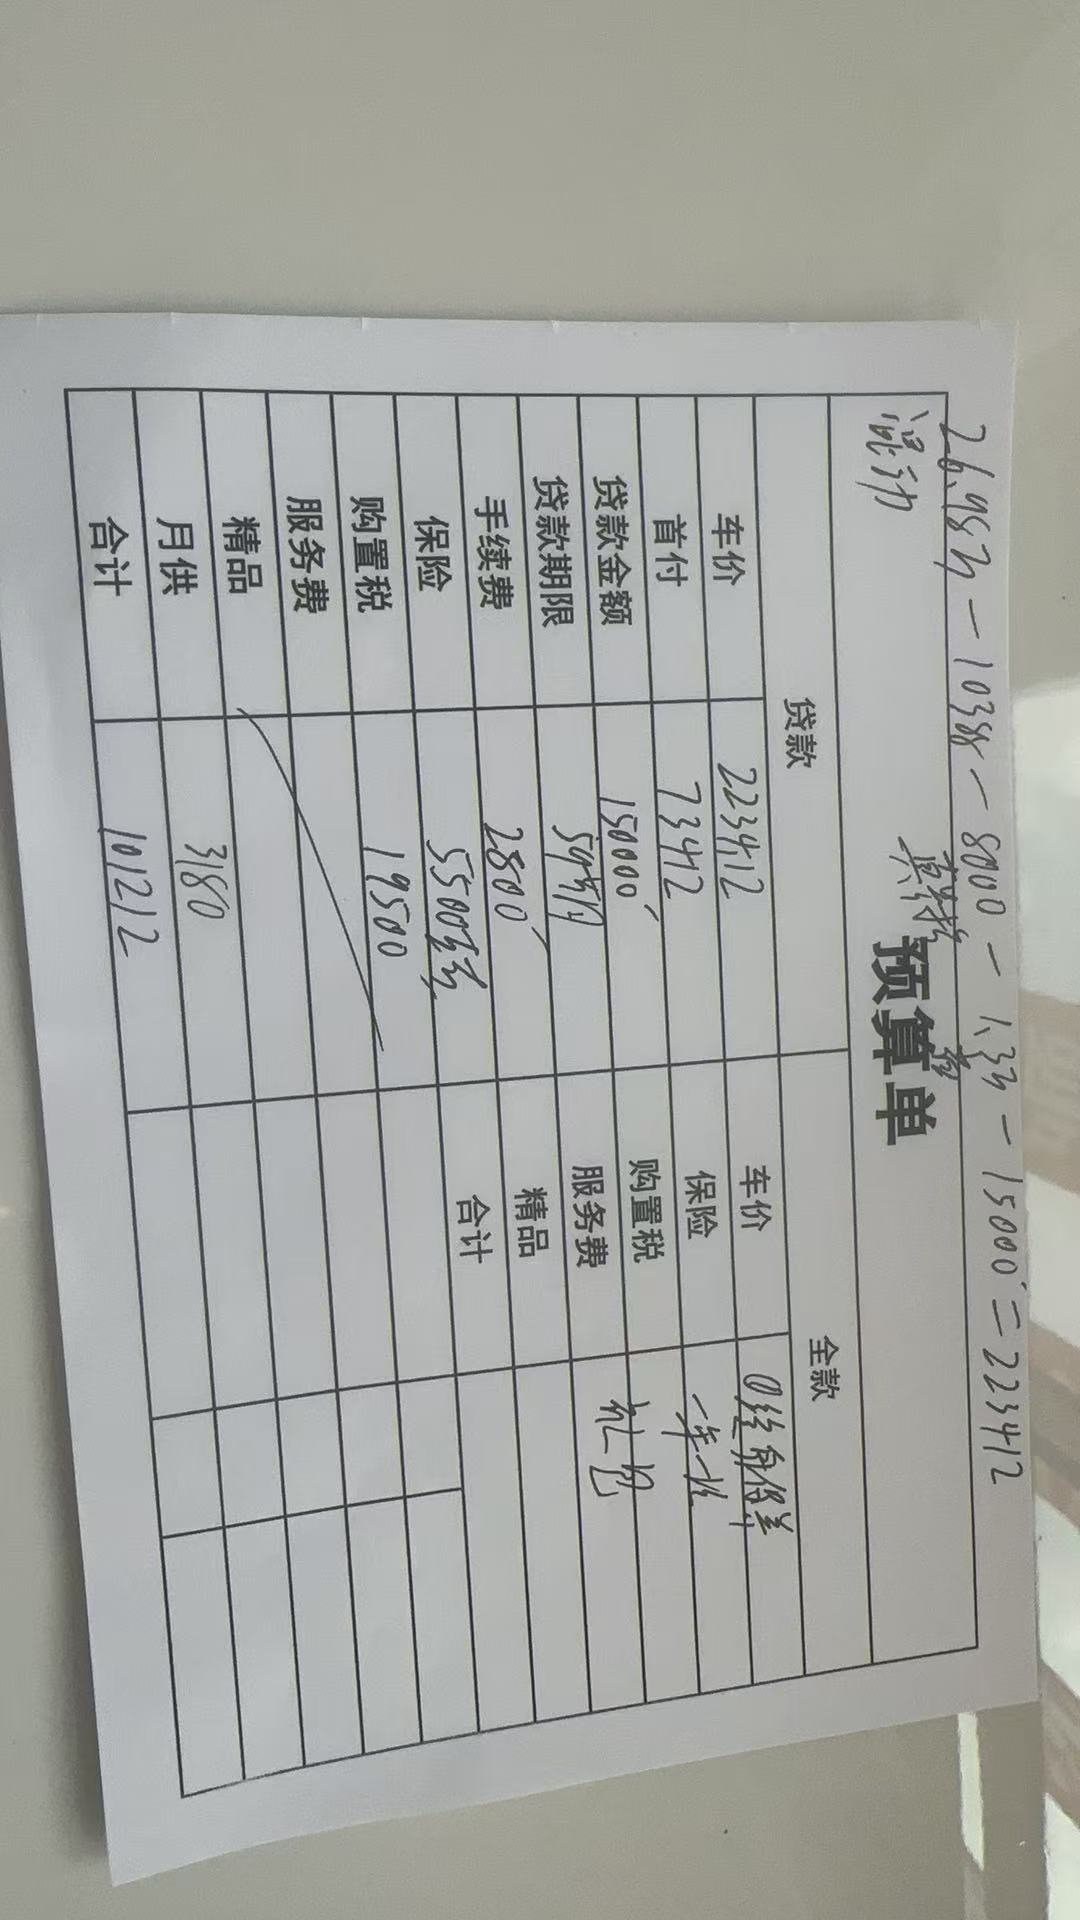 26.98万-10388-8000-1.3万-15000=223412
混动
预算单
贷款 全款
车价 223412 车价
首付 73412 保险 一年
贷款金额 150000 购置税
贷款期限 5年 服务费 礼包
手续费 2800 精品
保险 5500左右 合计
购置税 19500
服务费
精品
月供 3180
合计 101212